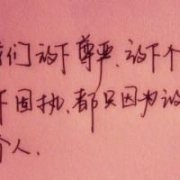 我们放下尊严、放下个
下固执、都只因为放
个人.